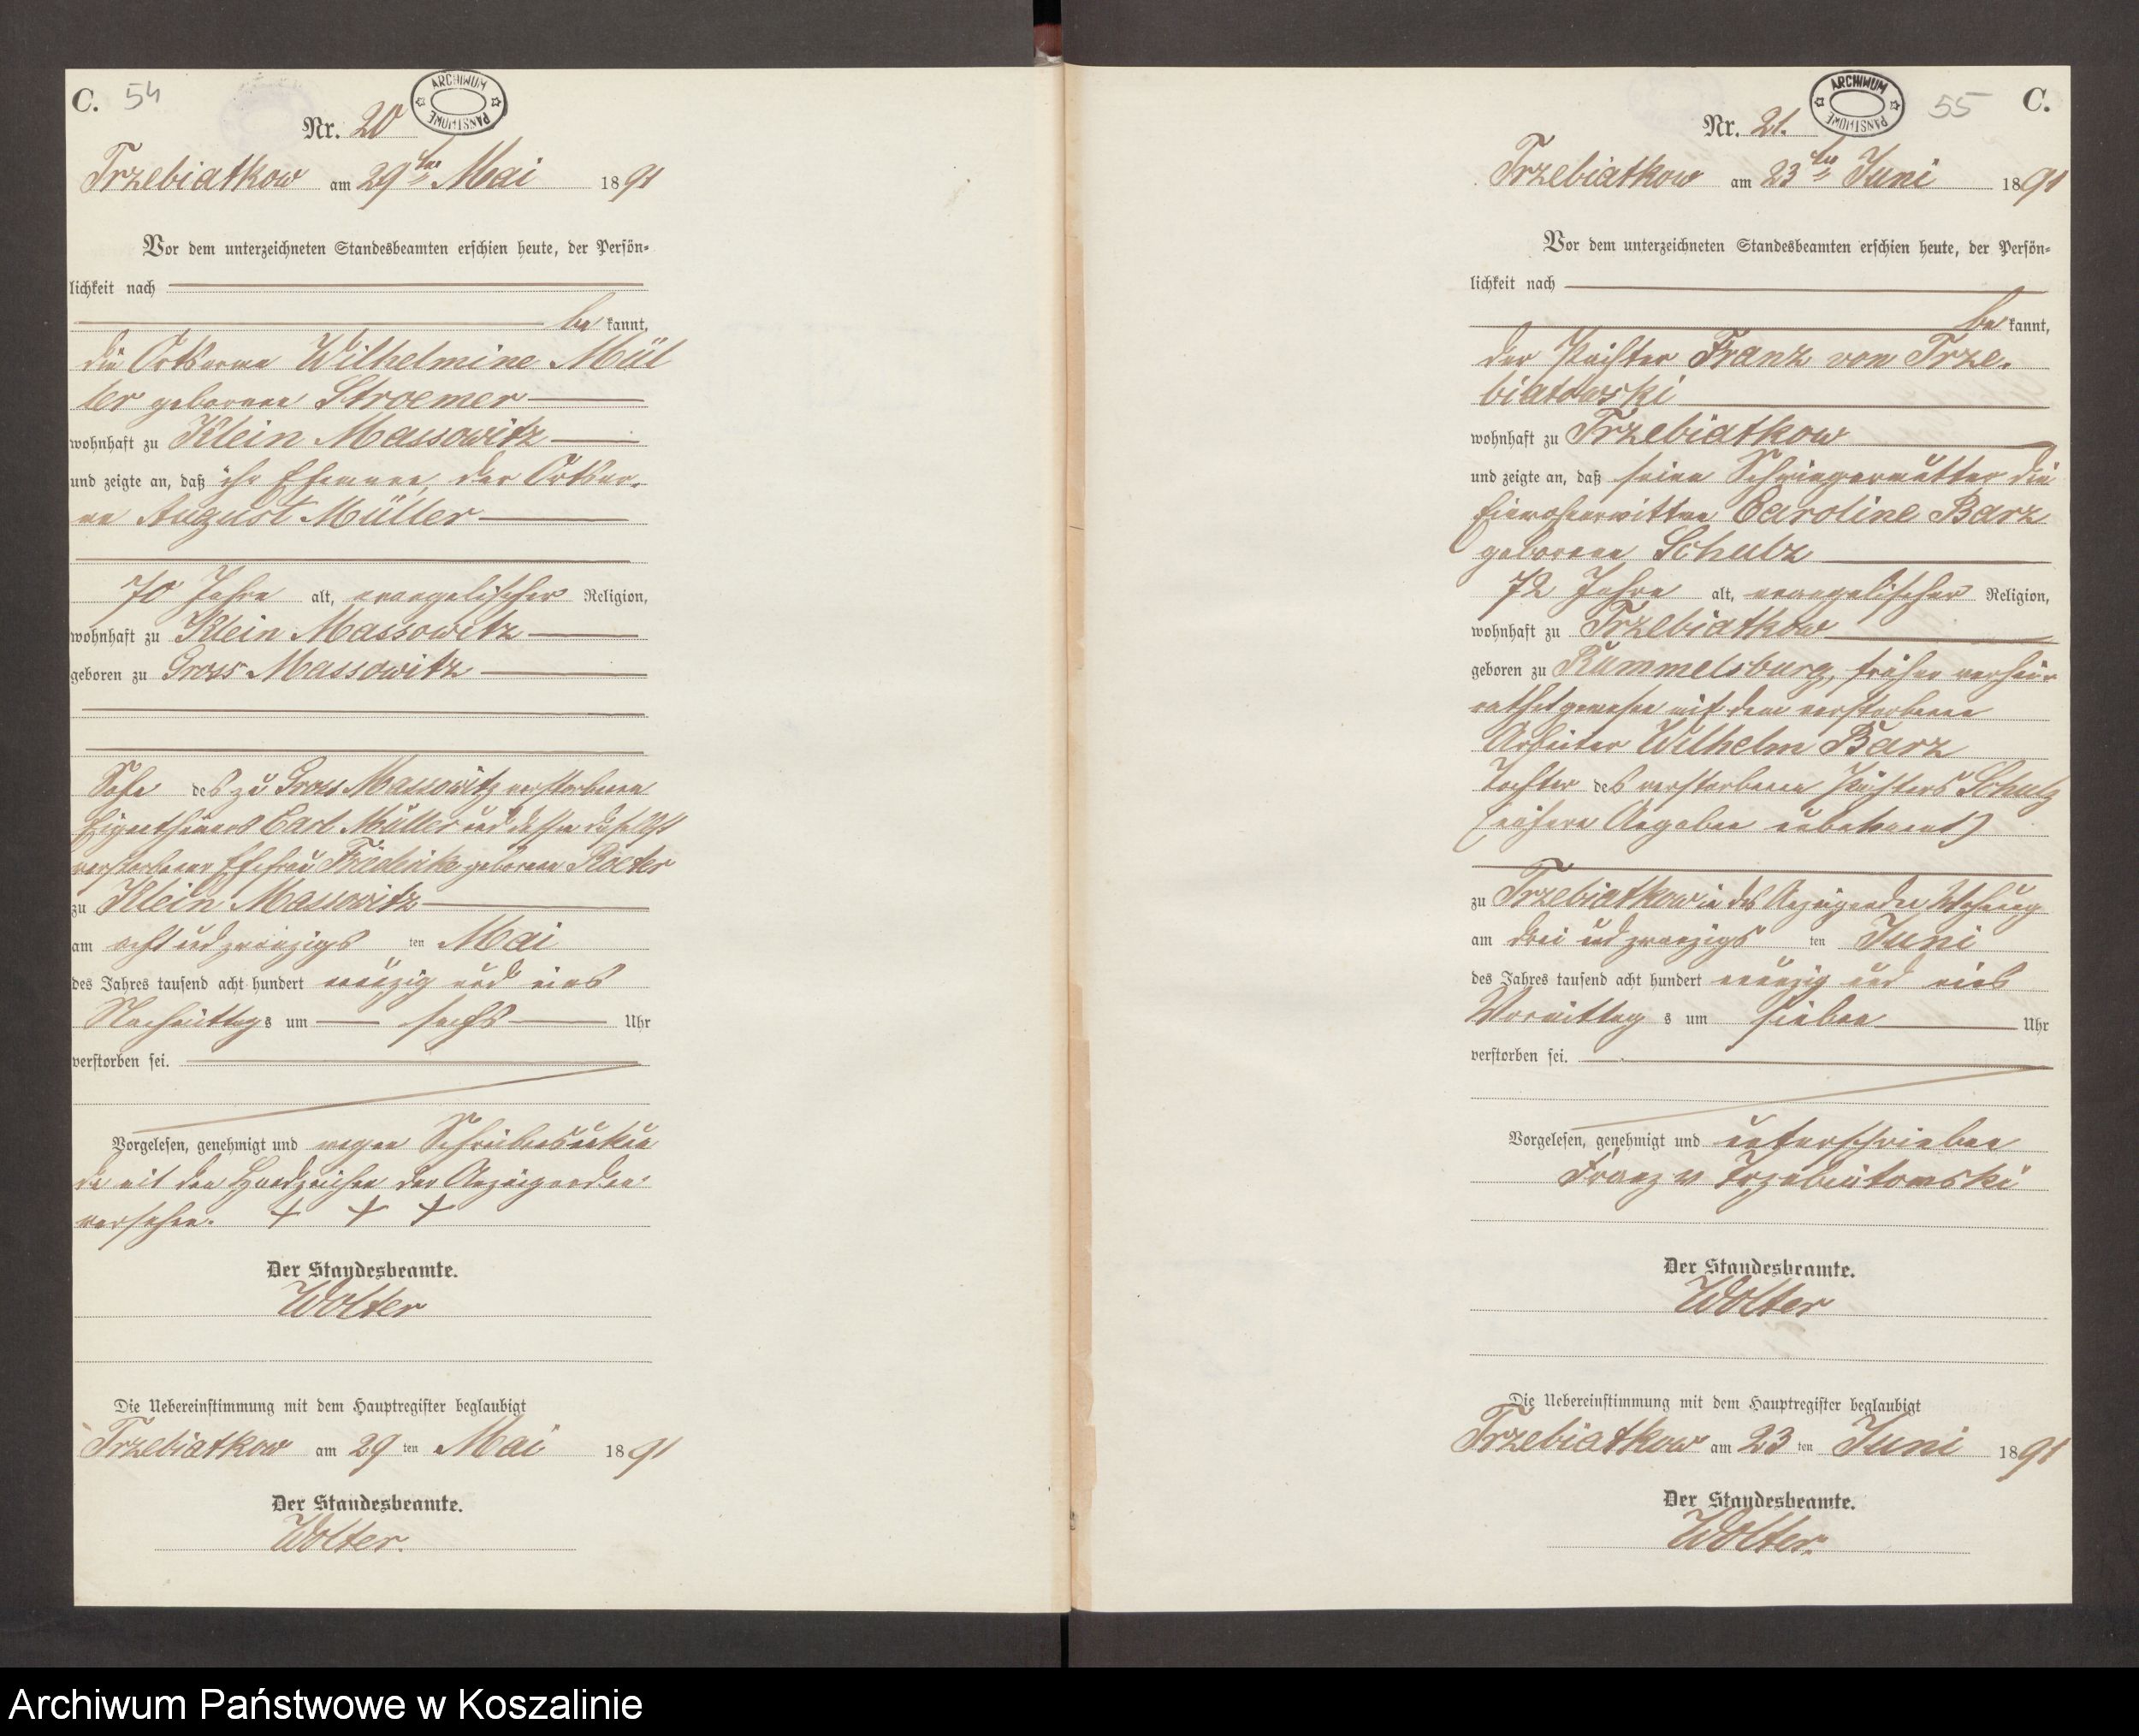 C. 54
ARCHIWUM PAŃSTWOWE
Nr. 20
Trzebiatkow am 29ten Mai 1891
Vor dem unterzeichneten Standesbeamten erschien heute, der Persön-
lichkeit nach
be kannt,
die Ortsarme Wilhelmine Mül
ler geborene Stroemer
wohnhaft zu Klein Massowitz
und zeigte an, daß ihr Ehemann, der Ortsar-
me August Müller
70 Jahre alt, evangelischer Religion,
wohnhaft zu Klein Massowitz
geboren zu Gross Massowitz
Sohn des zu Gross Massowitz verstorbenen
Eigenthümers Carl Müller und dessen daselbst
verstorbenen Ehefrau Friederike geborene Roeder
zu Klein Massowitz
am acht und zwanzigs ten Mai
des Jahres tausend acht hundert neunzig und eins
Nachmittags um sechs Uhr
verstorben sei.
Vorgelesen, genehmigt und wegen Schreibensunkun
de mit den Handzeichen der Anzeigenden
versehen. + + +
Der Standesbeamte.
Wolter
Die Uebereinstimmung mit dem Hauptregister beglaubigt
Trzebiatkow am 29 ten Mai 1891
Der Standesbeamte.
Wolter.
55 C.
ARCHIWUM PAŃSTWOWE
Nr. 21.
Trzebiatkow am 23ten Juni 1891
Vor dem unterzeichneten Standesbeamten erschien heute, der Persön-
lichkeit nach
be kannt,
der Pächter Franz von Trze-
biatowski
wohnhaft zu Trzebiatkow
und zeigte an, daß seine Schwiegermutter die
Einwohnerwittwe Caroline Barz
geborene Schulz
72 Jahre alt, evangelischer Religion,
wohnhaft zu Trzebiatkow
geboren zu Rummelsburg, früher verhei-
rathet gewesen mit dem verstorbenen
Arbeiter Wilhelm Barz
Tochter des verstorbenen Pächters Schulz
(nähere Angaben unbekannt)
zu Trzebiatkow in des Anzeigenden Wohnung
am drei und zwanzigs ten Juni
des Jahres tausend acht hundert neunzig und eins
Vormittag s um sieben Uhr
verstorben sei.
Vorgelesen, genehmigt und unterschrieben
Franz v Trzebiatowski
Der Standesbeamte.
Wolter
Die Uebereinstimmung mit dem Hauptregister beglaubigt
Trzebiatkow am 23 ten Juni 1891
Der Standesbeamte.
Wolter.
Archiwum Państwowe w Koszalinie